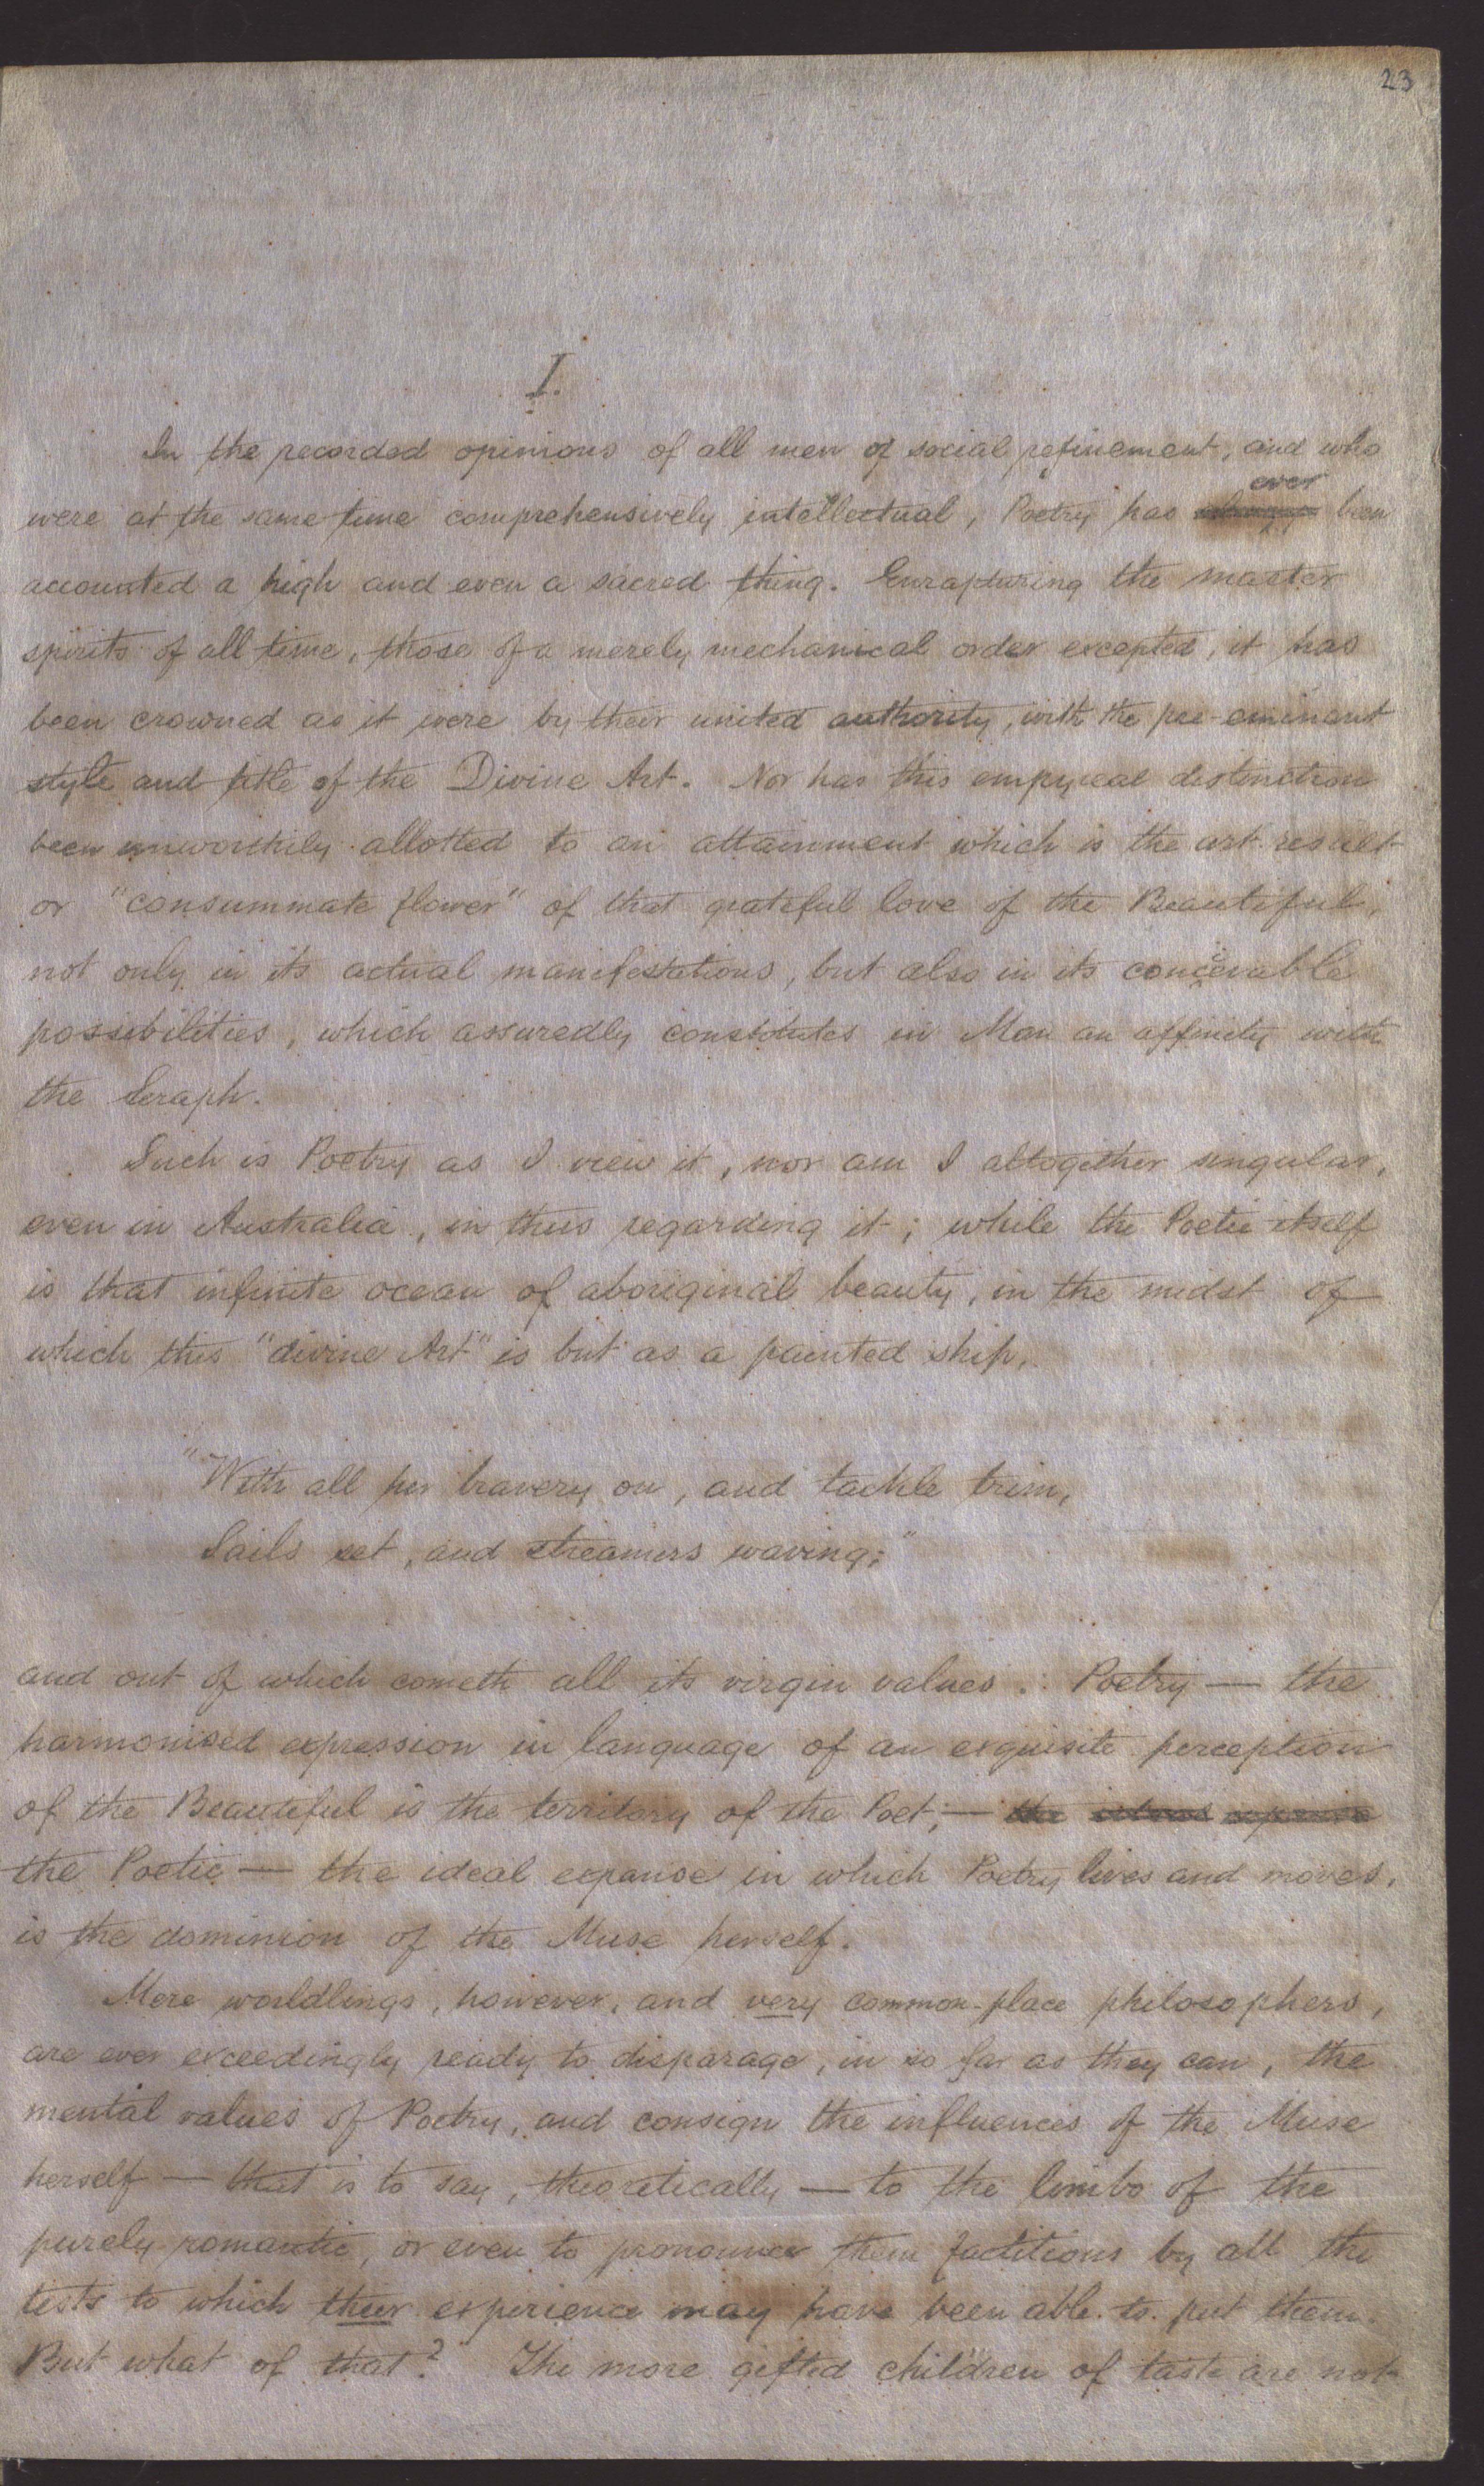 23
I.
In the recorded opinions of all men of social refinement, and who
ever
were at the same time comprehensively intellectual, Poetry has been
accounted a high and even a sacred thing. Enrapturing the master
spirits of all time, those of a merely mechanical order excepted, it has
been crowned as it were by their united authority, with the pre-eminent
style and title of the Divine Art. Nor has this empyreal distinction
been unworthily allotted to an attainment which is the art-result
or "consummate flower" of that grateful love of the Beautiful,
not only in its actual manifestations, but also in its conceivable
possibilities, which assuredly constitutes in Man an affinity with
the Seraph.
Such is Poetry as I view it, nor am I altogether singular,
even in Australia, in thus regarding it; while the Poetic itself
is that infinite ocean of aboriginal beauty, in the midst of
which this "divine Art" is but as a painted ship,
"With all her bravery on, and tackle trim,
Sails set, and streamers waving;"
and out of which cometh all its virgin values. Poetry — the
harmonised expression in language of an exquisite perception
of the Beautiful is the territory of the Poet; — the
the Poetic — the ideal expanse in which Poetry lives and moves,
is the dominion of the Muse herself.
Mere worldlings, however, and very common-place philosophers,
are ever exceedingly ready to disparage, in so far as they can, the
mental values of Poetry, and consign the influences of the Muse
herself — that is to say, theoretically — to the limbo of the
purely romantic, or even to pronounce them factitious by all the
tests to which their experience may have been able to put them.
But what of that? The more gifted children of taste are not